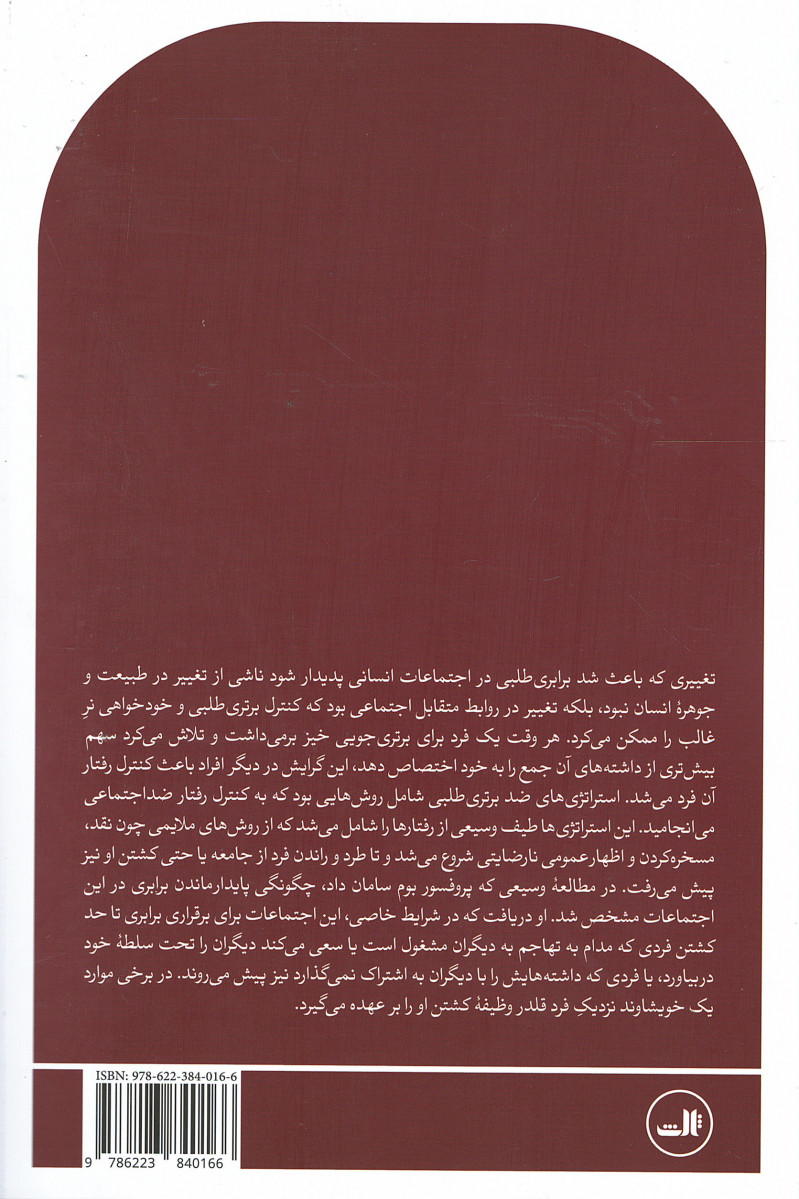 تغییری که باعث شد برابری‌طلبی در اجتماعات انسانی پدیدار شود ناشی از تغییر در طبیعت و
جوهرهٔ انسان نبود، بلکه تغییر در روابط متقابل اجتماعی بود که کنترل برتری‌طلبی و خودخواهی نرِ
غالب را ممکن می‌کرد. هر وقت یک فرد برای برتری‌جویی خیز برمی‌داشت و تلاش می‌کرد سهم
بیش‌تری از داشته‌های آن جمع را به خود اختصاص دهد، این گرایش در دیگر افراد باعث کنترل رفتار
آن فرد می‌شد. استراتژی‌های ضد برتری‌طلبی شامل روش‌هایی بود که به کنترل رفتار ضداجتماعی
می‌انجامید. این استراتژی‌ها طیف وسیعی از رفتارها را شامل می‌شد که از روش‌های ملایمی چون نقد،
مسخره‌کردن و اظهارعمومی نارضایتی شروع می‌شد و تا طرد و راندن فرد از جامعه یا حتی کشتن او نیز
پیش می‌رفت. در مطالعهٔ وسیعی که پروفسور بوم سامان داد، چگونگی پایدارماندن برابری در این
اجتماعات مشخص شد. او دریافت که در شرایط خاصی، این اجتماعات برای برقراری برابری تا حد
کشتن فردی که مدام به تهاجم به دیگران مشغول است یا سعی می‌کند دیگران را تحت سلطهٔ خود
دربیاورد، یا فردی که داشته‌هایش را با دیگران به اشتراک نمی‌گذارد نیز پیش می‌روند. در برخی موارد
یک خویشاوند نزدیکِ فرد قلدر وظیفهٔ کشتن او را بر عهده می‌گیرد.
ISBN: 978-622-384-016-6
9 786223 840166
ثالث